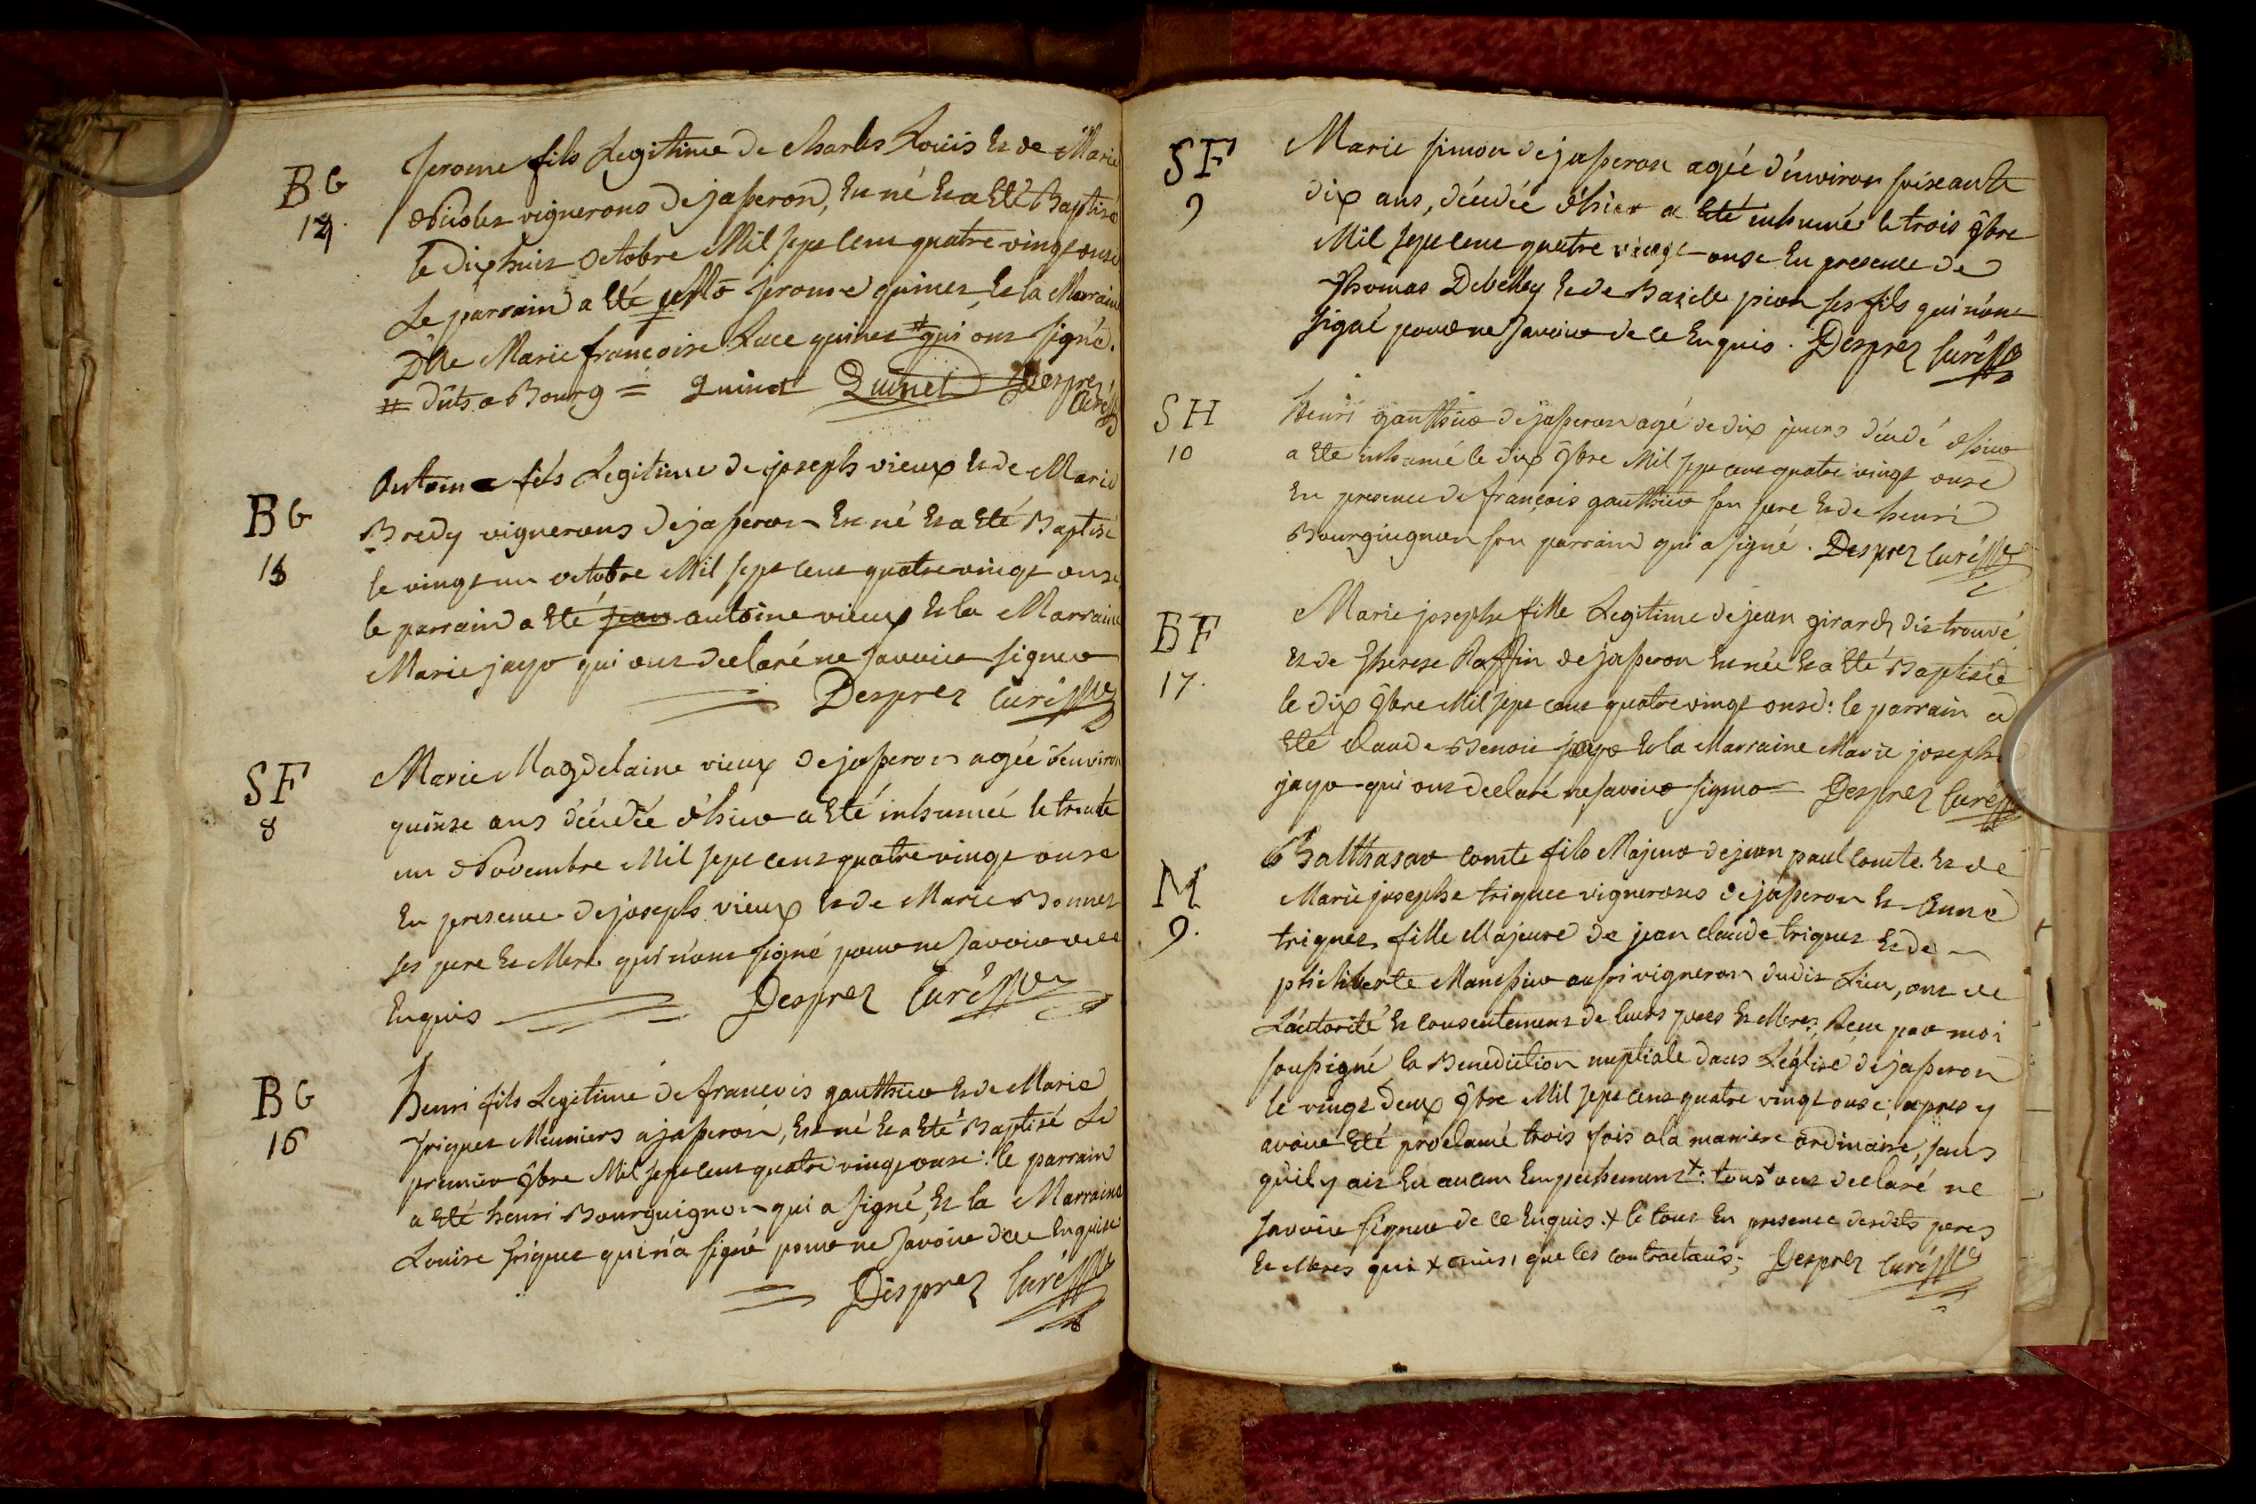 BG
14.
Jerome fils Legitime de Charles Louis Et de Marie
Nicolet vignerons de jasseron, Est né Et a Eté Baptisé
le dix huit Octobre Mil sept cent quatre vingt onse
Le parrain a Eté Jerome quinet Et la Marraine
Dlle Marie francoise Luce quinet # qui ont signé.
# dûts a Bourg = quinet Quinet Desprez Curé
BG
15
Antoine fils Legitime de joseph vieux Et de Marie
Bredy vignerons de jasseron Est né Et a Eté Baptisé
le vingt un octobre Mil sept cent quatre vingt onse
le parrain a Eté jean antoine vieux Et la Marraine
Marie jayr qui ont declaré ne savoir signer
Desprez Curé
SF
8
Marie Magdelaine vieux de jasseron agée d'environ
quinse ans décédée d'hier a Eté inhumée le trente
un Novembre Mil sept cent quatre vingt onse
En presence de joseph vieux Et de Marie Bonnet
ses pere Et Mere qui n'ont signé pour ne savoir de ce
Enquis Desprez Curé
BG
16
henri fils Legitime de francois gauthier Et de Marie
Triquet Meuniers a jasseron, Est né Et a Eté Baptisé Le
premier 9bre Mil sept cent quatre vingt onse: le parrain
a Eté henri Bourguignon qui a signé, Et la Marraine
Louise Triquet qui n'a signé pour ne savoir de ce Enquise
Desprez Curé
SF
9
Marie simon de jasseron agée d'environ soixante
dix ans, décédée d'hier a Eté inhumée le trois 9bre
Mil sept cent quatre vingt onse En presence de
Thomas Debelley Et de Bazile pion ses fils qui n'ont
signé pour ne savoir de ce Enquis. Desprez Curé
SH
10
henri gauthier de jasseron agé de dix jours décédé d'hier
a Eté inhumé le dix 9bre Mil sept cent quatre vingt onse
En presence de françois gauthier son pere Et de henri
Bourguignon son parrain qui a signé. Desprez Curé
BF
17.
Marie josephe fille Legitime de jean girard dit trouvé
Et de Therese Raffin de jasseron Est née Et a Eté Baptisée
le dix 9bre Mil sept cent quatre vingt onse: le parrain a
Eté claude Benoit jayr Et la Marraine Marie josephe
jayr qui ont declaré ne savoir signer Desprez Curé
M
9.
Balthasar comte fils Majeur de jean paul comte Et de
Marie josephe triquet vignerons de jasseron Et Anne
triquet fille Majeure de jean claude triquet Et de
philiberte Manssier aussi vigneron dudit Lieu, ont de
L'autorité Et consentement de leurs peres Et Meres, Recu par moi
soussigné la Benediction nuptiale dans L'église de jasseron
le vingt deux 9bre Mil sept cent quatre vingt onse; apres y
avoir Eté proclamé trois fois a la maniere ordinaire, sans
qu'il y ait Eu aucun Empechement: tous ont declaré ne
savoir signer de ce Enquis. + le tout En presence desdits peres
Et Meres qui + ainsi que les contractans; Desprez Curé